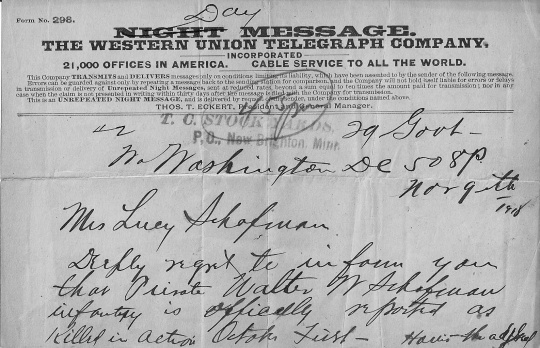 Day
Form No. 298.
NIGHT MESSAGE.
THE WESTERN UNION TELEGRAPH COMPANY.
INCORPORATED
21,000 OFFICES IN AMERICA. CABLE SERVICE TO ALL THE WORLD.
This Company TRANSMITS and DELIVERS messages only on conditions limiting its liability, which have been assented to by the sender of the following message.
Errors can be guarded against only by repeating a message back to the sending station for comparison, and the Company will not hold itself liable for errors or delays
in transmission or delivery of Unrepeated Night Messages, sent at reduced rates, beyond a sum equal to ten times the amount paid for transmission; nor in any
case when the claim is not presented in writing within thirty days after the message is filed with the Company for transmission.
This is an UNREPEATED NIGHT MESSAGE, and is delivered by request of the sender, under the conditions named above.
THOS. T. ECKERT, President and General Manager.
T. C. STOCK YARDS.
P.O., New Brighton, Minn.
29 Govt
Washington DC 508P
Nov 9th
1918
Mrs Lucy Schofman
Deeply regret to inform you
that Private Walter W Schofman
infantry is officially reported as
Killed in action October First
Harris the adj Genl